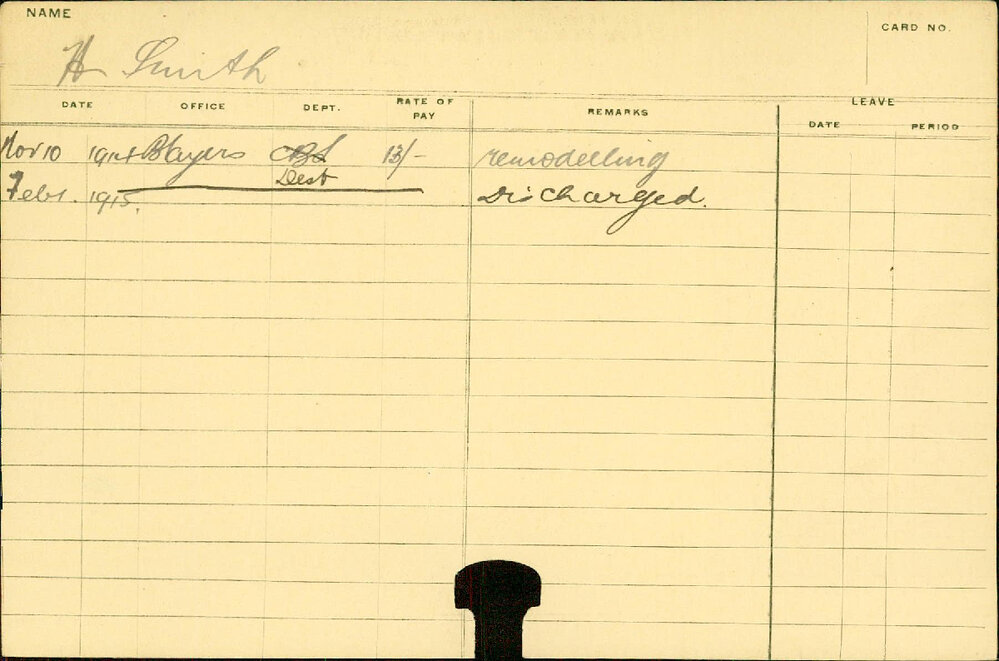 NAME
CARD NO.
H Smith
DATE OFFICE DEPT. RATE OF PAY REMARKS LEAVE
DATE PERIOD
Nov 10 1914 13/- remodelling
Dest
Feb 1. 1915. Discharged.